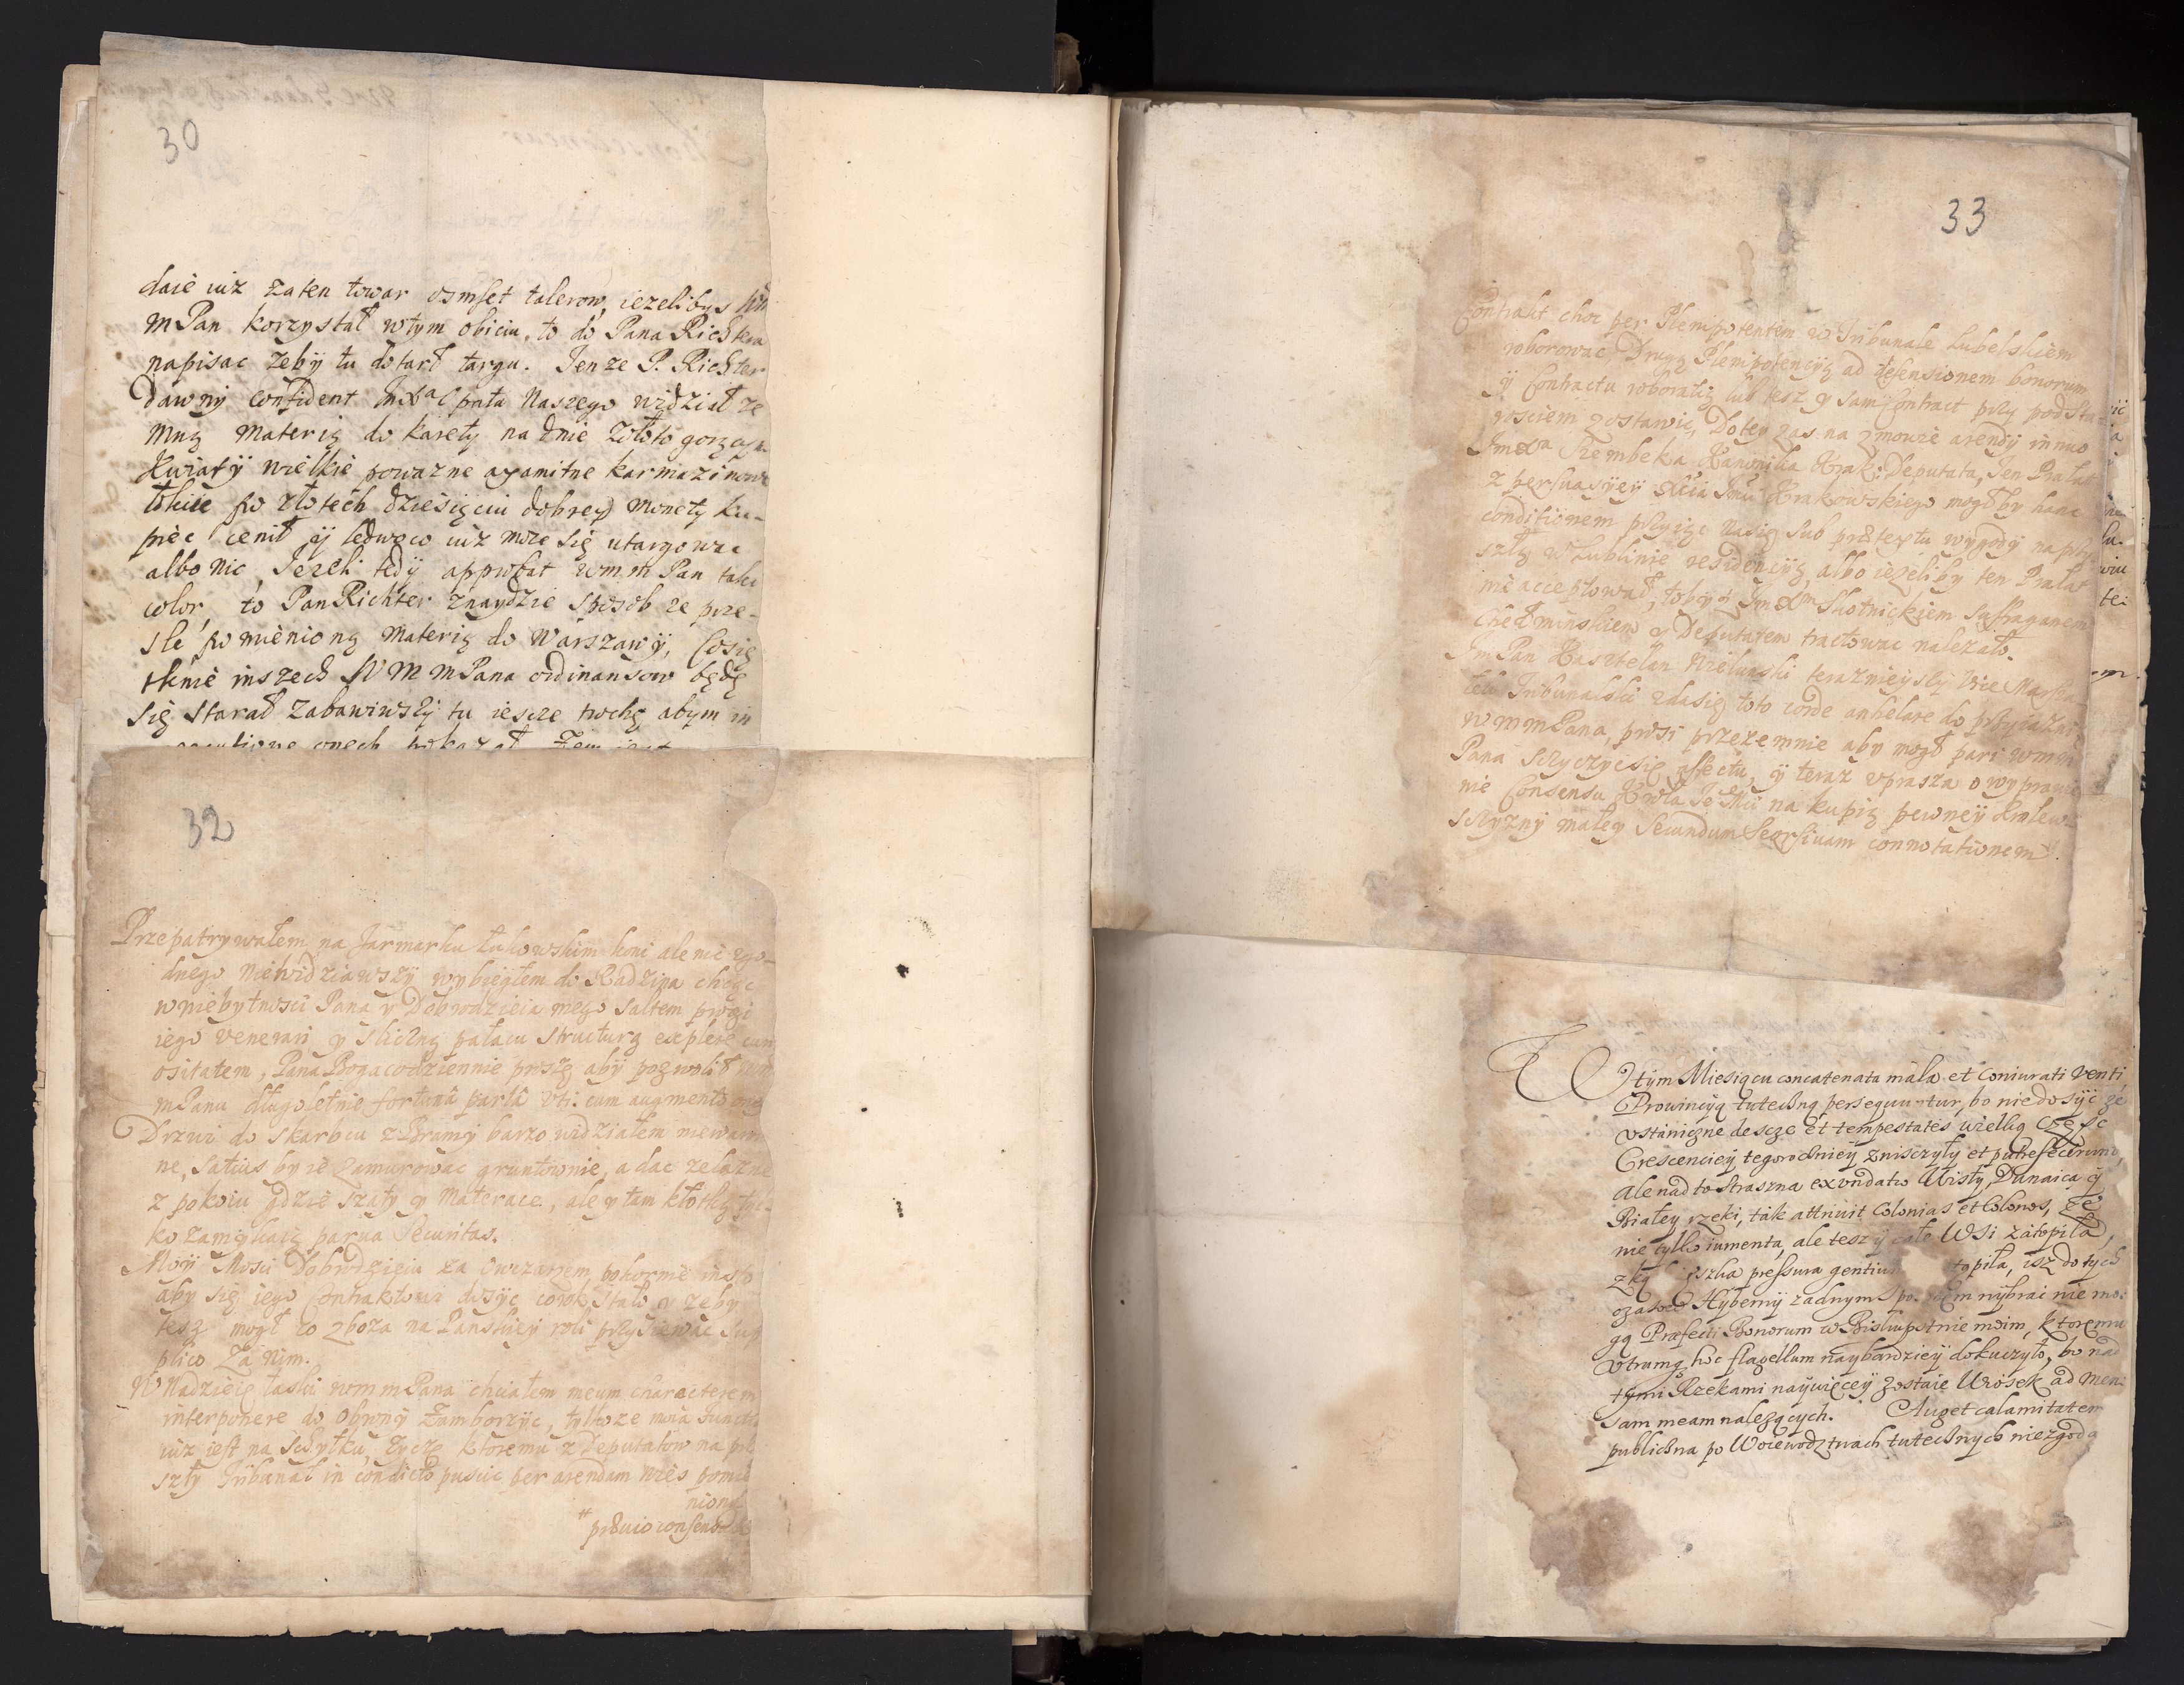 30
daie iuz zaten towar osmset talerow, iezelibys
mPan korzystał wtym obiciu, to do Pana Richtera
napisac zeby tu dotarł targu. Tenze P. Richter
dawny confident Naszego widział ze
mną materią do karety na dnie złoto
kwiaty wielkie powazne axamitne karmazinowe
łokiec po złotech dziesięciu dobrey monety ku-
piec cenił y ledwoco iuz moze się utargowac
albo nic, Jezeli tedy approbat wmm Pan taki
color, to Pan Richter znaydzie sposob ze prze-
sle pomienioną materią do Warszawy, Cosię
tknie inszech W M mPana ordinansow będę
się starał zabawiwszy tu iescze trochę abym in
onech pokazał
32
Przepatrywałem na Jarmarku Łukowskim koni ale nic zgo-
dnego niewidziawszy wybiegłem do Radzina chcąc
wniebytnosci Pana y Dobrodzieia mego saltem progi
iego venerari y sliczną pałacu structurą explere curi
ositatem, Pana Boga codziennie proszę aby pozwolił
mPanu długoletnie fortunâ partâ uti cum augmento
Drzwi do skarbcu z Bramy barzo widziałem
ne, satius by ie zamurowac gruntownie, a dac zelazne
z pokoiu gdzie szaty y materace, ale y tam kłotką tyl-
ko zamykaią parua securitas.
Moy Mosci Dobrodzieiu za owczarzem pokornie insto
aby się iego Contraktowi dosyc stało y zeby
tesz mogł co zboza na Panskiey roli przysiewac sup
plico za nim.
W Nadzieię łaski wmmPana chciałem meum characterem
interponere do obrony Zamborzyc, tylkoze moia functia
iuz iest na schyłku, zyczę ktoremu z Deputatow na prz
szły Tribunał in condicto puscic per arendam wies pomie
nioną
# præuio consensu
33
Contrakt choc per Plenipotentem w Tribunale Lubelskiem
roborowac, Drugą Plenipotencyą ad defensionem bonorum
y Contractu roboratig lub tesz y sam Contract przy podsta-
rosciem zostawic, Dotey zas na zmowie arendy
Jmxa Szembeka Kanonika Krak: Deputata, ten Prałat
z persuasyey Krakowskiego mogłby hanc
conditionem przyiąc nasię sub prætextu wygody na przy
szłą w Lublinie residencyią, albo iezeliby ten Prałat
nie acceptował, toby z Jmxm Skotnickiem Suffraganem
Chełminskiem y Deputatem tractowac nalezało.
Jm Pan Kasztelan Wielunski teraznieyszy Vice Marsza
łek Tribunalski zdasię toto corde anhelare do przyiazni
wmmPana, prosi przezemnie aby mogł pari wmm
Pana sczyczycsię affectu, y teraz uprasza o wyprawie
nie Consensu Krola Je Mci na kupią pewney krolew-
sczyzny małey secundum seorsiuam connotationem.
W tym Miesiącu concatenata mala et coniurati venti,
Prowincyą tuteczną persequuntur, bo nie dosyć ze
ustawiczne descze et tempestates wielką Część
Crescenciey tegoroczniey zniszczyły et putrefecerunt,
ale nad to straszna exundatio Wisły, Dunaica y
Białey rzeki, tak attriuit Colonias et Colonos, ze
nie tylko iumenta, ale tesz y całe Wsi zatopiła,
pressura gentium topiła, isz do tych
czasow Hyberny zadnym wybrac nie mo-
gą Præfecti Bonorum w Biskupstwie moim, ktoremu
utrumq hoc flagellum naybardziey dokuczyło, bo nad
tymi Rzekami naywięcey zostaie Wiosek ad men-
sam meam nalezących. Auget calamitatem
publiczna po Woiewodztwach tutecznych niezgoda